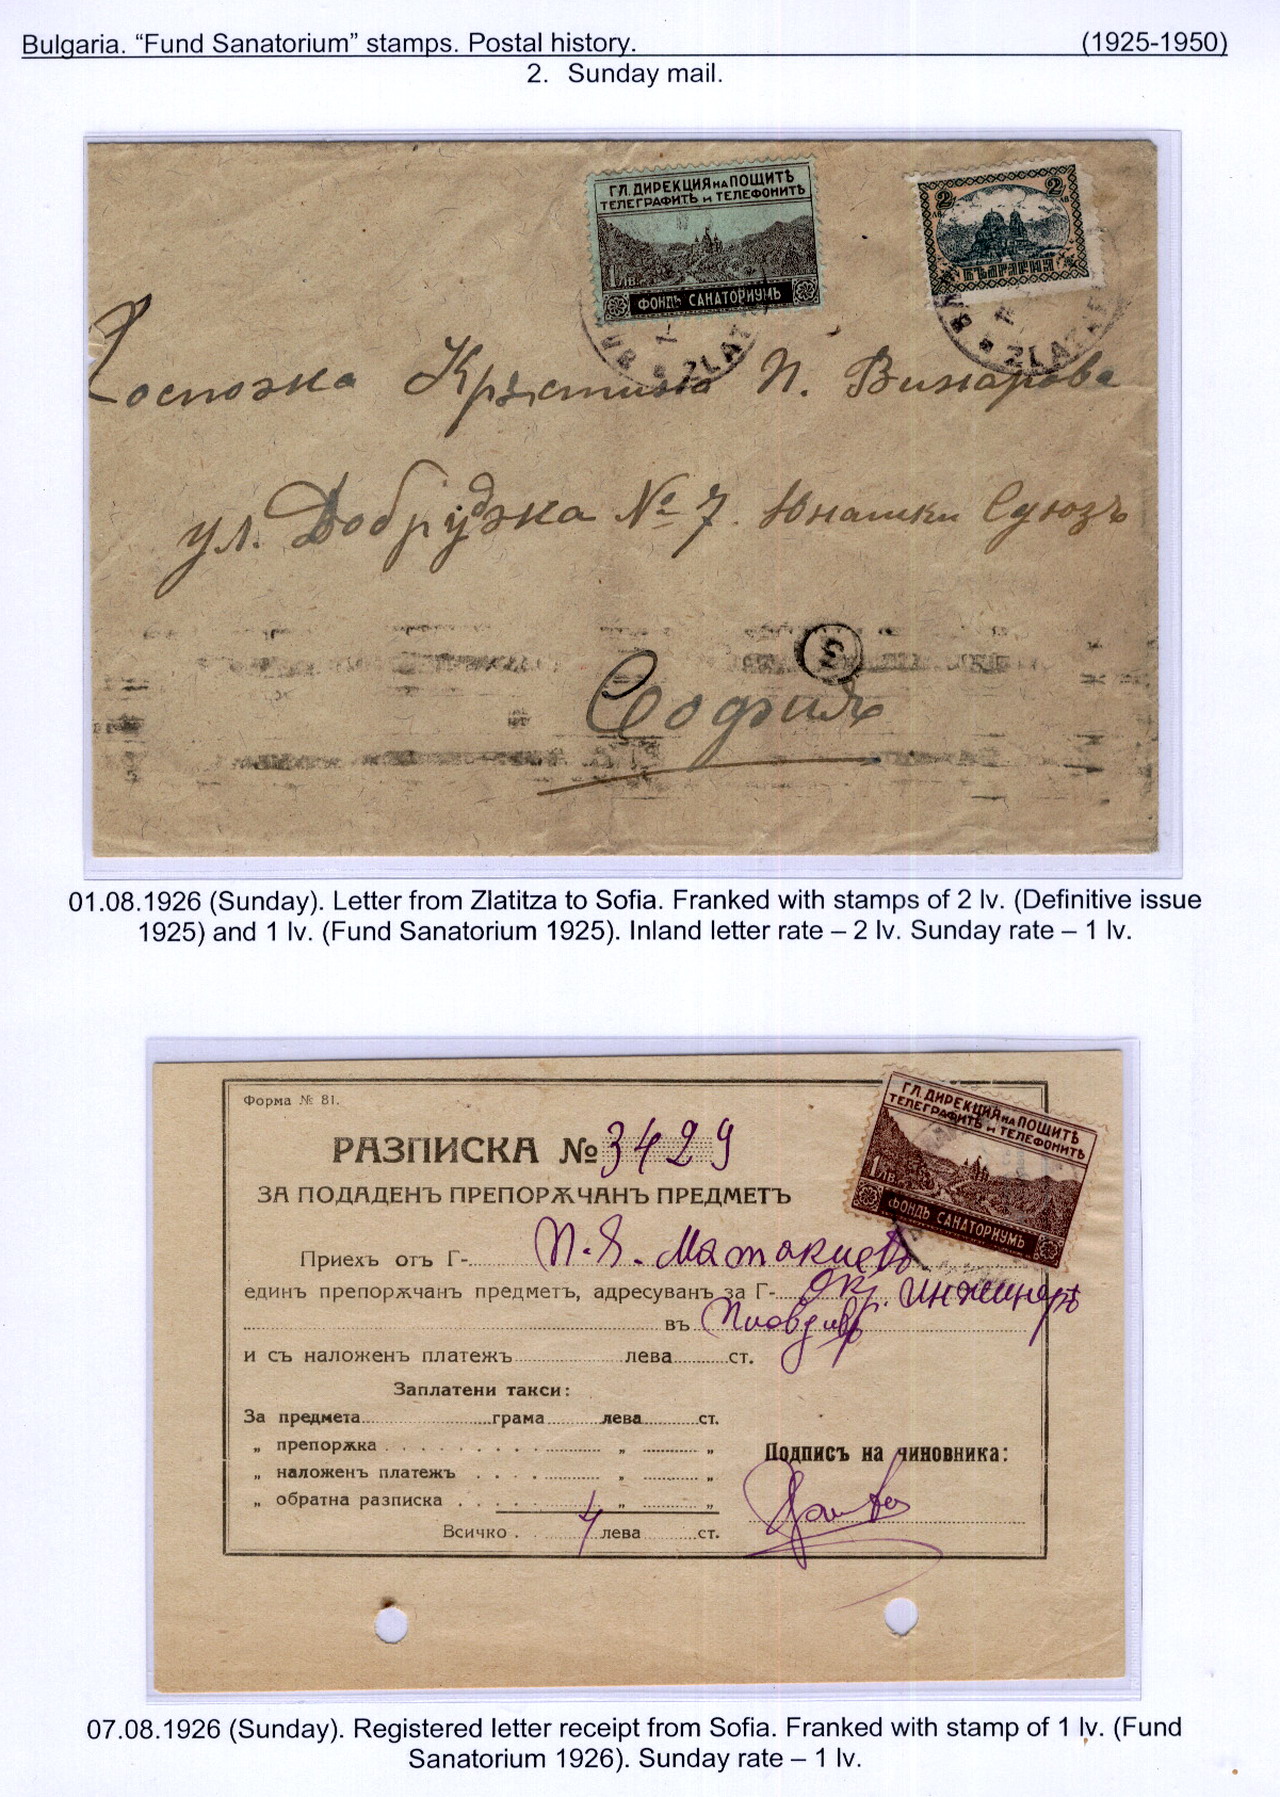 Bulgaria. “Fund Sanatorium” stamps. Postal history. (1925-1950)
2. Sunday mail.
ГЛ. ДИРЕКЦИЯ НА ПОЩИТѢ
ТЕЛЕГРАФИТѢ И ТЕЛЕФОНИТѢ
1 ЛВ.
ФОНДЪ САНАТОРИУМЪ
2 2
ЛВ ЛВ
БЪЛГАРИЯ
ZLAT
ZLAT
Госпожа Кръстина П. Винарова
ул. Добруджа № 7. Юнашки Съюзъ
3
София
01.08.1926 (Sunday). Letter from Zlatitza to Sofia. Franked with stamps of 2 lv. (Definitive issue
1925) and 1 lv. (Fund Sanatorium 1925). Inland letter rate – 2 lv. Sunday rate – 1 lv.
Форма № 81.
ГЛ. ДИРЕКЦИЯ НА ПОЩИТѢ
ТЕЛЕГРАФИТѢ И ТЕЛЕФОНИТѢ
1 ЛВ.
ФОНДЪ САНАТОРИУМЪ
РАЗПИСКА № 3429
ЗА ПОДАДЕНЪ ПРЕПОРѪЧАНЪ ПРЕДМЕТЪ
Приехъ отъ Г- П. Я. Матакиевъ
единъ препорѫчанъ предметъ, адресуванъ за Г- Окр. Инженеръ
въ Пловдивъ
и съ наложенъ платежъ лева ст.
Заплатени такси:
За предмета грама лева ст.
„ препорѫка „ „
„ наложенъ платежъ „ „
„ обратна разписка „ „
Всичко 4 лева ст.
Подписъ на чиновника:
07.08.1926 (Sunday). Registered letter receipt from Sofia. Franked with stamp of 1 lv. (Fund
Sanatorium 1926). Sunday rate – 1 lv.